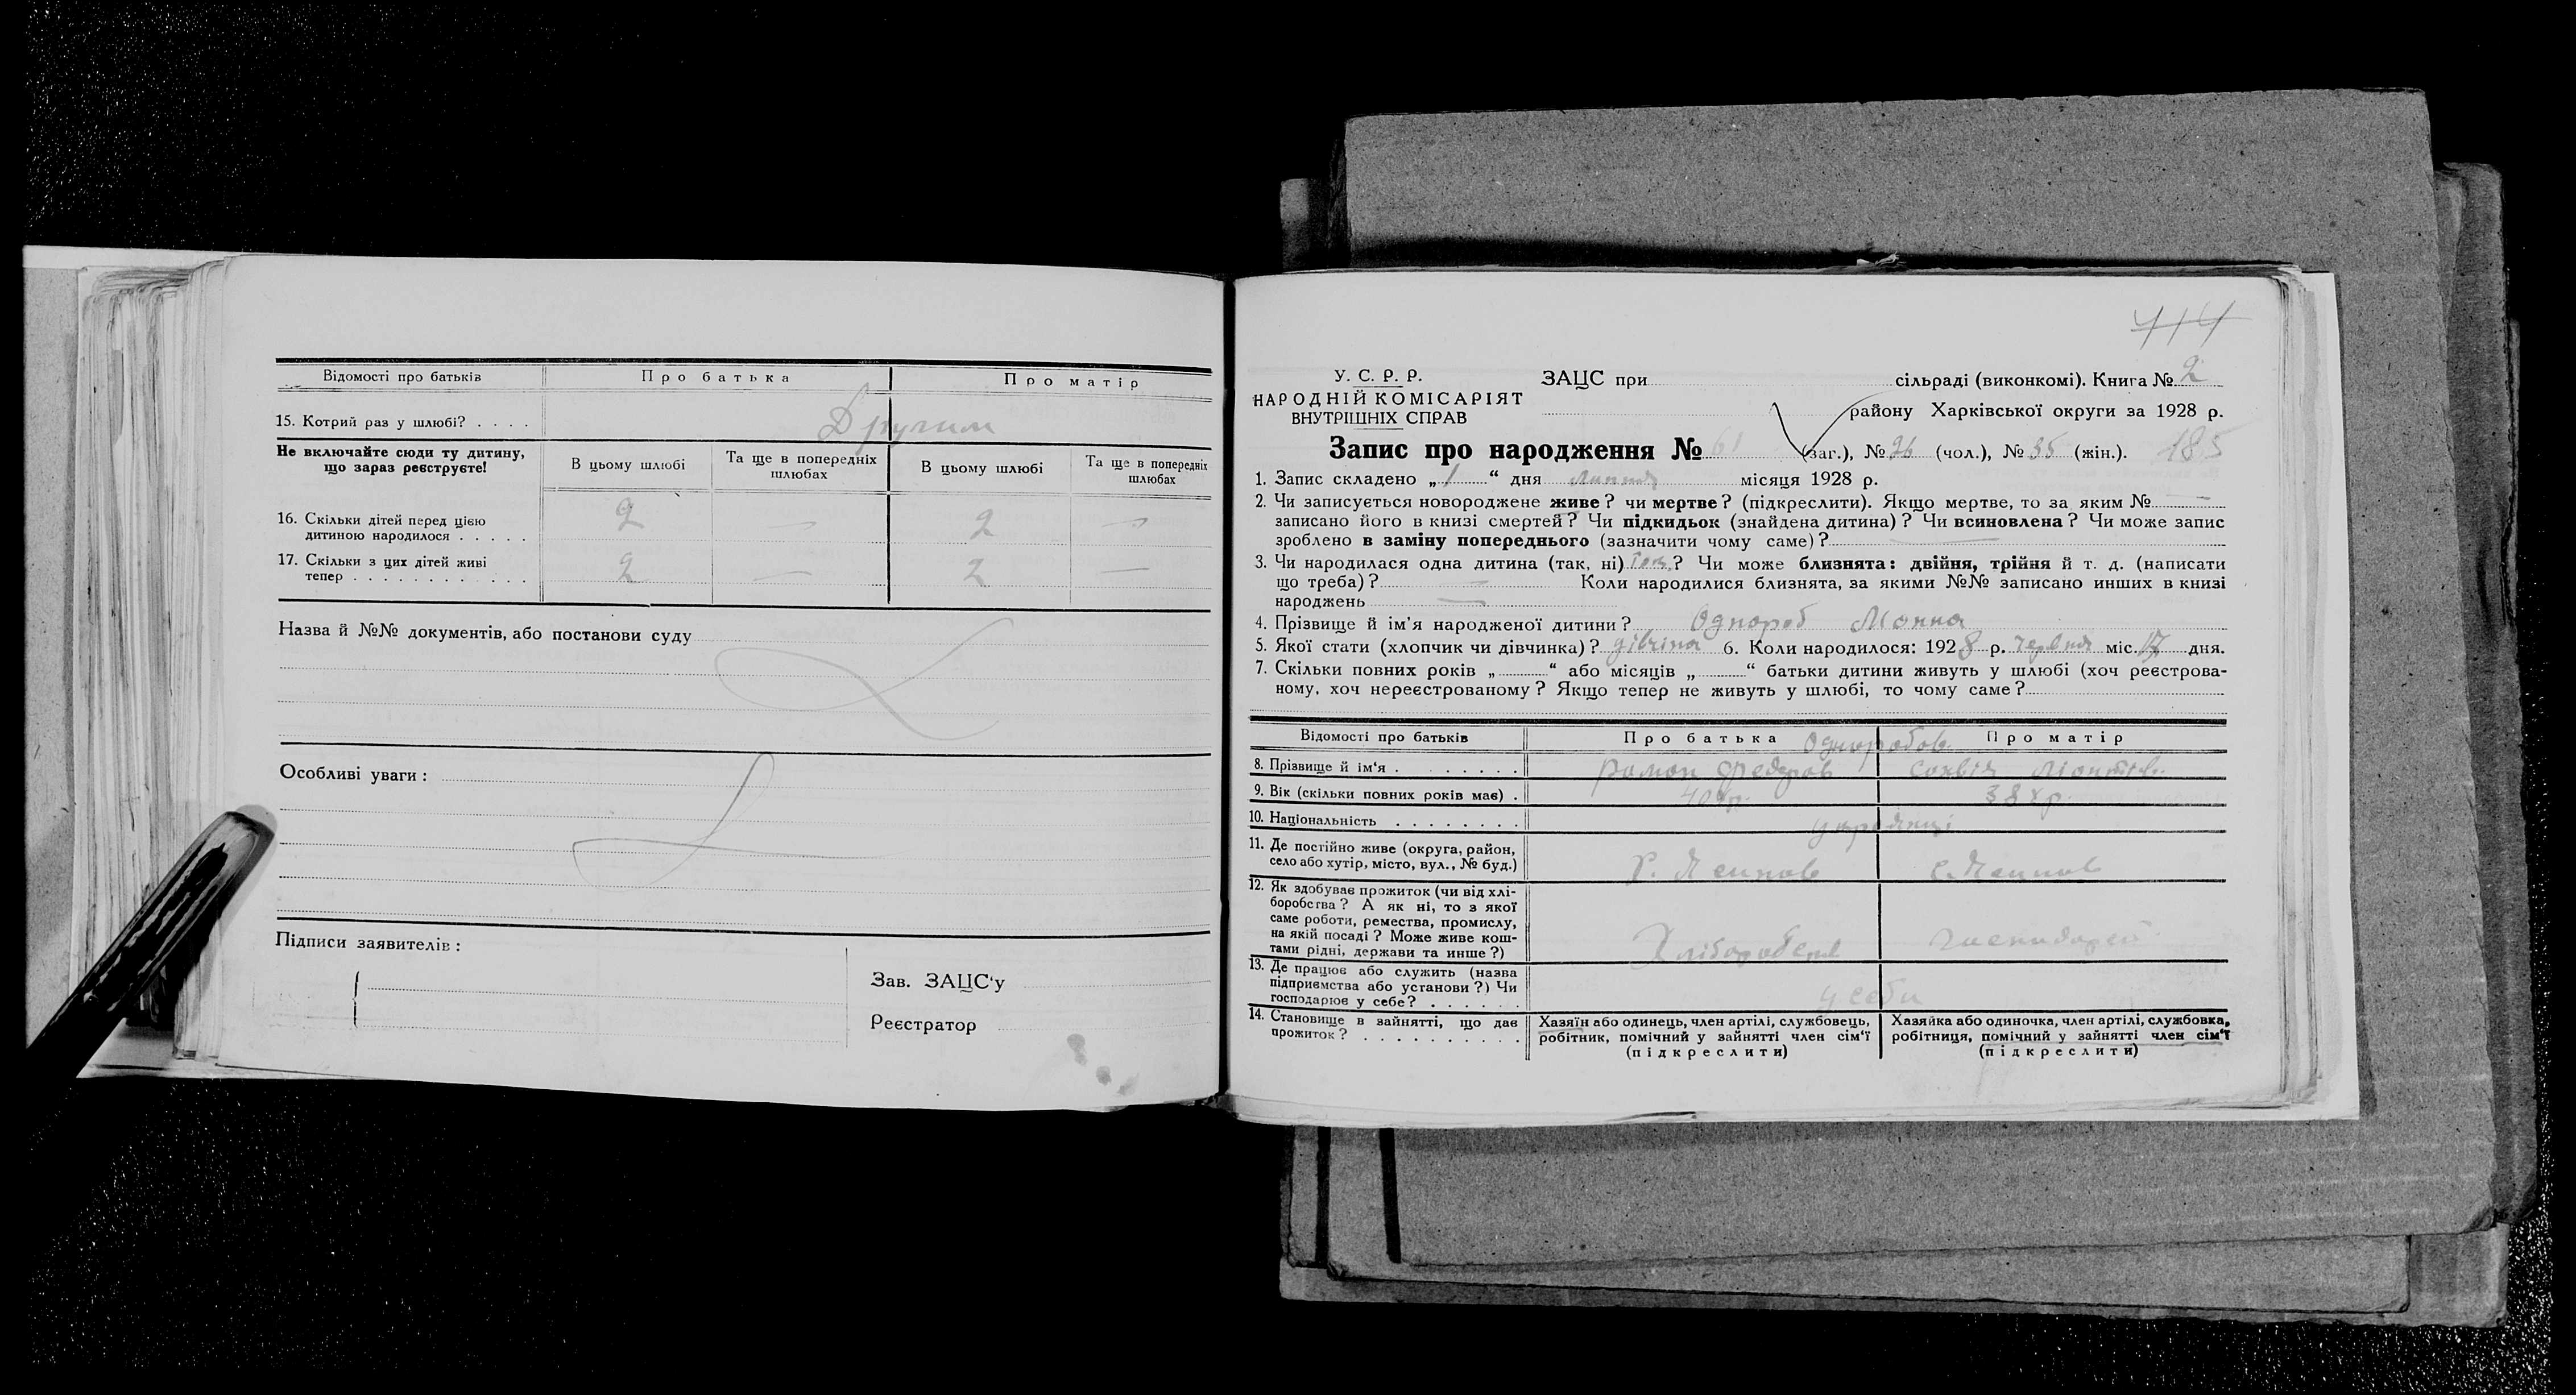 Відомості про батьків Про батька Про матір
15. Котрий раз у шлюбі? . . . . Другим
Не включайте сюди ту дитину, що зараз реєструєте! В цьому шлюбі Та ще в попередніх шлюбах В цьому шлюбі Та ще в попередніх шлюбах
16. Скільки дітей перед цією дитиною народилося . . . . . 2 — 2 —
17. Скільки з цих дітей живі тепер . . . . . . . . . . . . 2 — 2 —
Назва й №№ документів, або постанови суду
Особливі уваги :
Підписи заявителів :
Зав. ЗАЦС‘у
Реєстратор
414
У. С. Р. Р.
НАРОДНІЙ КОМІСАРІЯТ
ВНУТРІШНІХ СПРАВ
ЗАЦС при сільраді (виконкомі). Книга № 2
району Харківської округи за 1928 р.
Запис про народження № 61 (заг.), № 26 (чол.), № 35 (жін.). 185
1. Запис складено „ 1 “ дня липня місяця 1928 р.
2. Чи записується новороджене живе? чи мертве? (підкреслити). Якщо мертве, то за яким № —
записано його в книзі смертей? Чи підкидьок (знайдена дитина)? Чи всиновлена? Чи може запис
зроблено в заміну попереднього (зазначити чому саме)? —
3. Чи народилася одна дитина (так, ні) так? Чи може близнята: двійня, трійня й т. д. (написати
що треба)? — Коли народилися близнята, за якими №№ записано инших в книзі
народжень —
4. Прізвище й ім‘я народженої дитини? Однороб
5. Якої стати (хлопчик чи дівчинка)? дівчина 6. Коли народилося: 1928 р. червня міс. 17 дня.
7. Скільки повних років „ “ або місяців „ “ батьки дитини живуть у шлюбі (хоч реєстрова-
ному, хоч нереєстрованому? Якщо тепер не живуть у шлюбі, то чому саме?
Відомості про батьків Про батька Про матір
8. Прізвище й ім‘я . . . . . . . . Роман Федоров
9. Вік (скільки повних років має) . 40 38
10. Національність . . . . . . . . українці
11. Де постійно живе (округа, район, село або хутір, місто, вул., № буд.)
12. Як здобуває прожиток (чи від хлі-
боробства? А як ні, то з якої
саме роботи, ремества, промислу,
на якій посаді? Може живе кош-
тами рідні, держави та инше?)
13. Де працює або служить (назва
підприємства або установи?) Чи
господарює у себе? . . . . . . у себе
14. Становище в зайнятті, що дає прожиток? . . . . . . . . . .
Хазяїн або одинець, член артілі, службовець,
робітник, помічний у зайнятті член сім‘ї
(підкреслити)
Хазяйка або одиночка, член артілі, службовка,
робітниця, помічний у зайнятті член сім‘ї
(підкреслити)